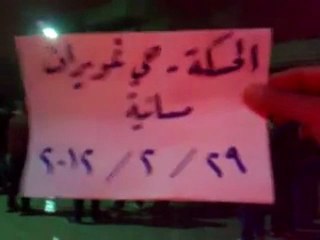 الحسكة - حي غويران
مسائية
٢٩ / ٢ / ٢٠١٢